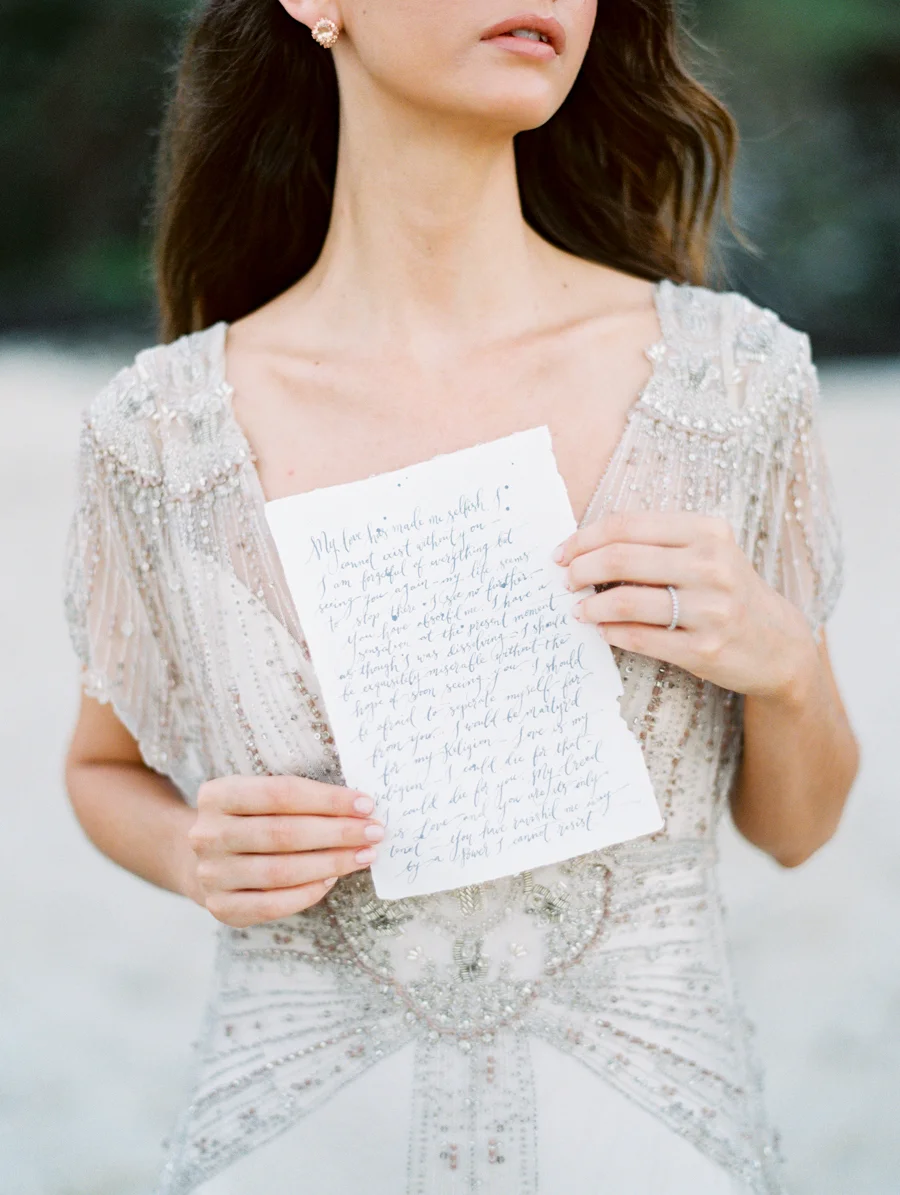 My love has made me selfish I
cannot exist without you —
I am forgetful of everything but
seeing you again — my life seems
to stop there — I see no further
You have absorb'd me. I have a
sensation at the present moment
as though I was dissolving — I should
be exquisitely miserable without the
hope of soon seeing you. I should
be afraid to seperate myself far
from you. I would be martyr'd
for my Religion — Love is my
religion — I could die for that —
I could die for you. My Creed
is Love and you are its only
tenet — You have ravish'd me away
by a Power I cannot resist